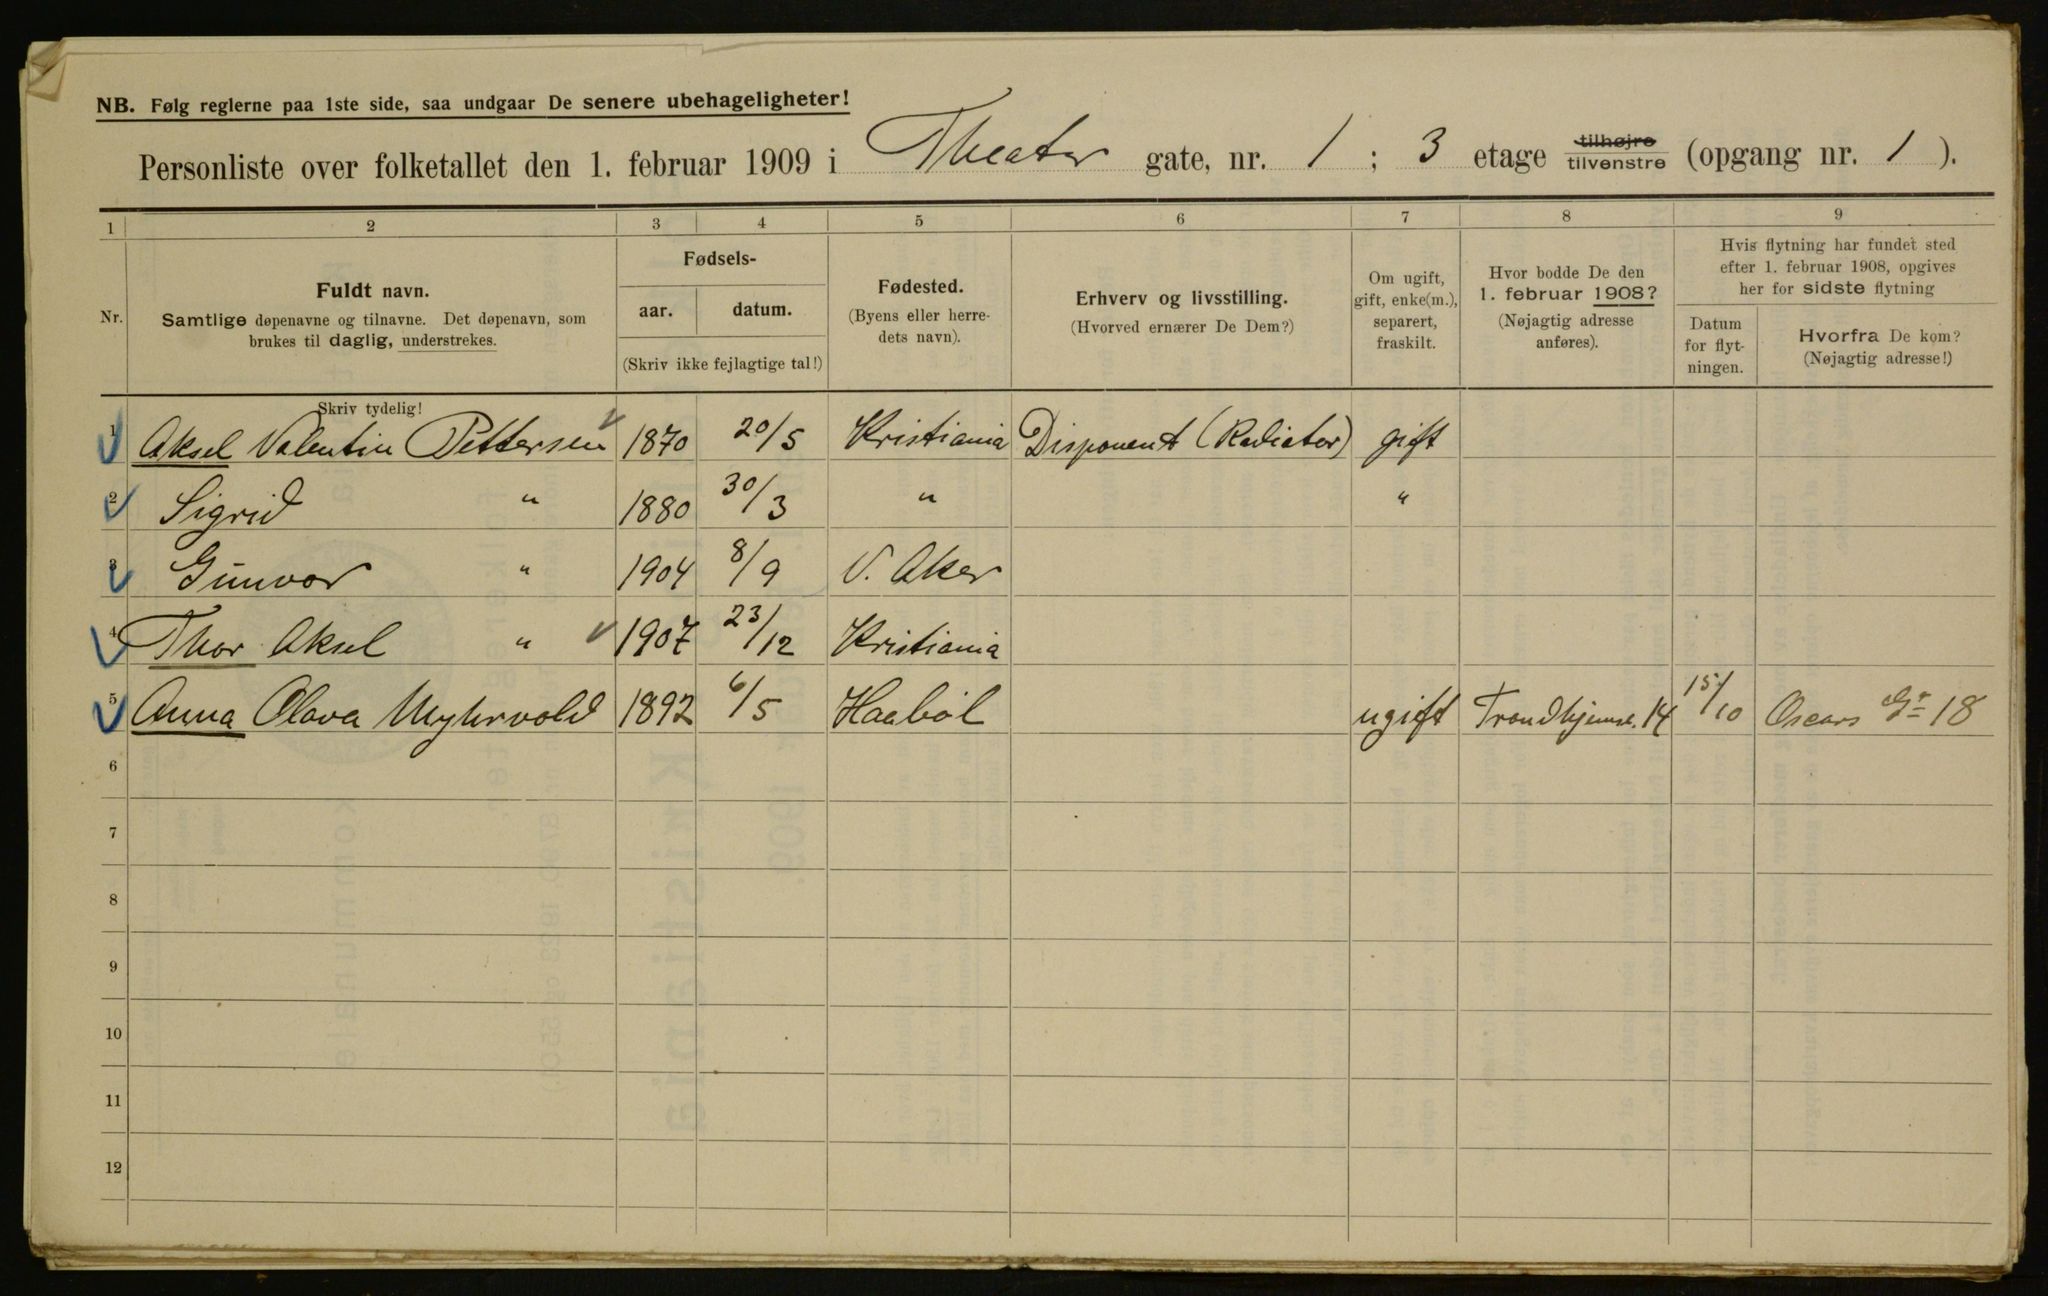 NB. Følg reglerne paa 1ste side, saa undgaar De senere ubehageligheter!
Personliste over folketallet den 1. februar 1909 i Theater gate, nr. 1 ; 3 etage tilhøjre tilvenstre (opgang nr. 1 ).
1 2 3 4 5 6 7 8 9
Nr.
Fuldt navn.
Samtlige døpenavne og tilnavne. Det døpenavn, som
brukes til daglig, understrekes.
Fødsels-
aar. datum.
(Skriv ikke fejlagtige tal!)
Fødested.
(Byens eller herre-
dets navn).
Erhverv og livsstilling.
(Hvorved ernærer De Dem?)
Om ugift,
gift, enke(m.),
separert,
fraskilt.
Hvor bodde De den
1. februar 1908?
(Nøjagtig adresse
anføres).
Hvis flytning har fundet sted
efter 1. februar 1908, opgives
her for sidste flytning
Datum
for flyt-
ningen.
Hvorfra De kom?
(Nøjagtig adresse!)
Skriv tydelig!
1 Aksel Valentin Pettersen 1870 20/5 Kristiania Disponent (Radiator) gift
2 Sigrid " 1880 30/3 " "
3 Gunvor " 1904 8/9 V. Aker
4 Thor Aksel " 1907 23/12 Kristiania
5 Anna Olava Myhrvold 1892 6/5 Haabøl ugift Trondhjemsv. 14 15/10 Oscars Gt 18
6
7
8
9
10
11
12